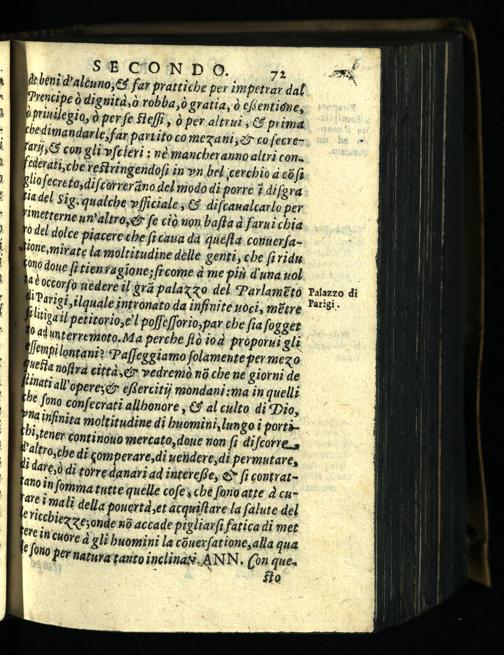 SECONDO. 72
de beni d'alcuno, & far prattiche per impetrar dal
Prencipe ò dignità, ò robba, ò gratia, ò essentione,
ò priuilegio, ò per se stessi, ò per altrui, & prima
che dimandarle, far partito co mezani, & co secre-
tarij, & con gli vscieri: nè mancheranno altri con-
federati, che restringendosi in vn bel cerchio à cõsi
glio secreto, discorrerãno del modo di porre ĩ disgra
tia del Sig. qualche vfficiale, & discaualcarlo per
rimetterne un'altro, & se ciò non basta à farui chia
ro del dolce piacere che si caua da questa conuersa-
tione, mirate la moltitudine delle genti, che si ridu
cono doue si tien ragione; si come à me più d'una uol
ta è occorso uedere il grã palazzo del Parlamẽto
di Parigi, ilquale intronato da infinite uoci, mẽtre
si litiga il petitorio, e'l possessorio, par che sia sogget
to ad un terremoto. Ma perche stò io à proporui gli
essempi lontani? Passeggiamo solamente per mezo
questa nostra città, & vedremo nõ che ne giorni de
stinati all'opere; & essercitij mondani: ma in quelli
che sono consecrati allhonore, & al culto di Dio,
vna infinita moltitudine di huomini, lungo i porti-
chi, tener continouo mercato, doue non si discorre
d'altro, che di comperare, di uendere, di permutare,
di dare, ò di torre danari ad interesse, & si contrat-
tano in somma tutte quelle cose, che sono atte à cu-
rare i mali della pouertà, et acquistare la salute del
le ricchezze; onde nõ accade pigliarsi fatica di met
tere in cuore à gli huomini la cõuersatione, alla qua
le sono per natura tanto inclinati. ANN. Con que-
sto
Palazzo di
Parigi.